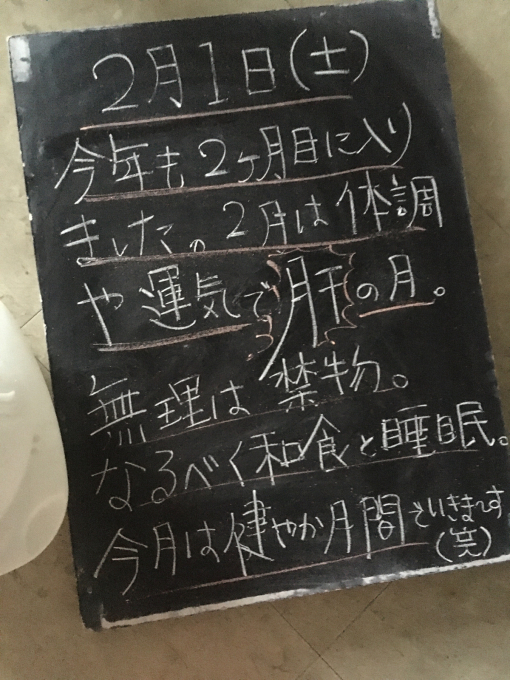 2月1日(土)
今年も2ヶ月目に入り
ました。2月は体調
や運気で肝の月。
無理は禁物。
なるべく和食と睡眠。
今月は健やか月間でいきます
(笑)